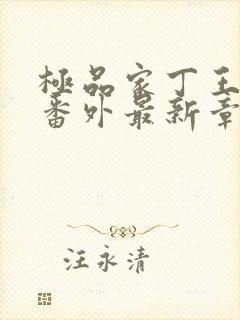 極品家丁王
番外最新章
汪永清